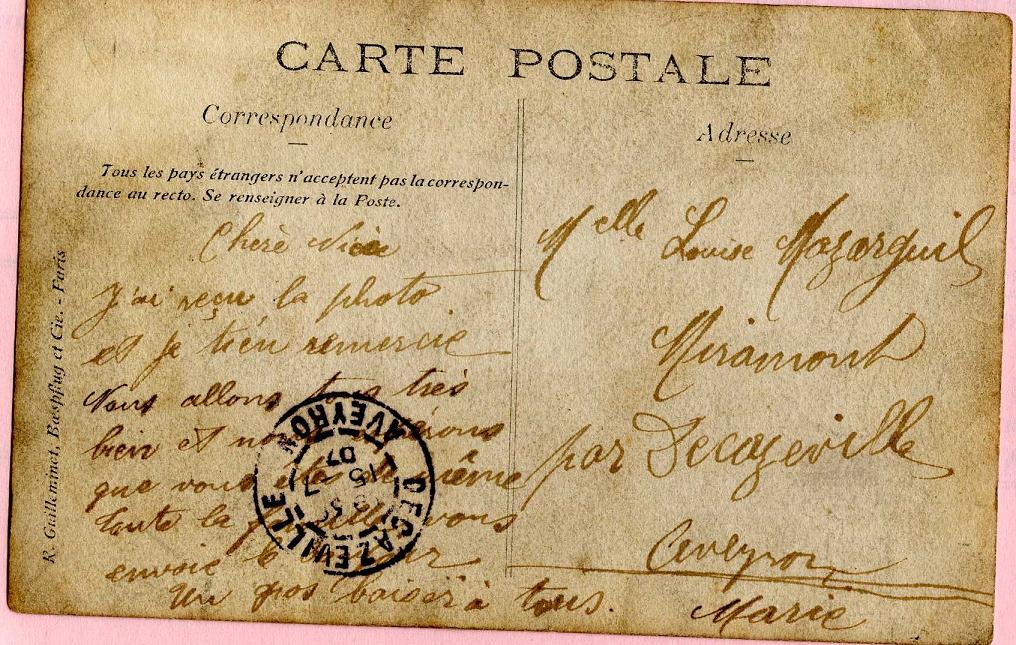 CARTE POSTALE
Correspondance
Tous les pays étrangers n'acceptent pas la correspon-
dance au recto. Se renseigner à la Poste.
R. Guilleminot, Bœspflug et Cie. - Paris
Cherè
J'ai reçu la photo
et je tién remercie
Nous allons tous très
bien et nous
que vous de même
toute la vous
envoie le
Un gros baisèr à tous.
Adresse
Melle Louise Mazarguil
Miramont
par Decazeville
Aveyron
Marie
DECAZEVILLE
AVEYRON
07